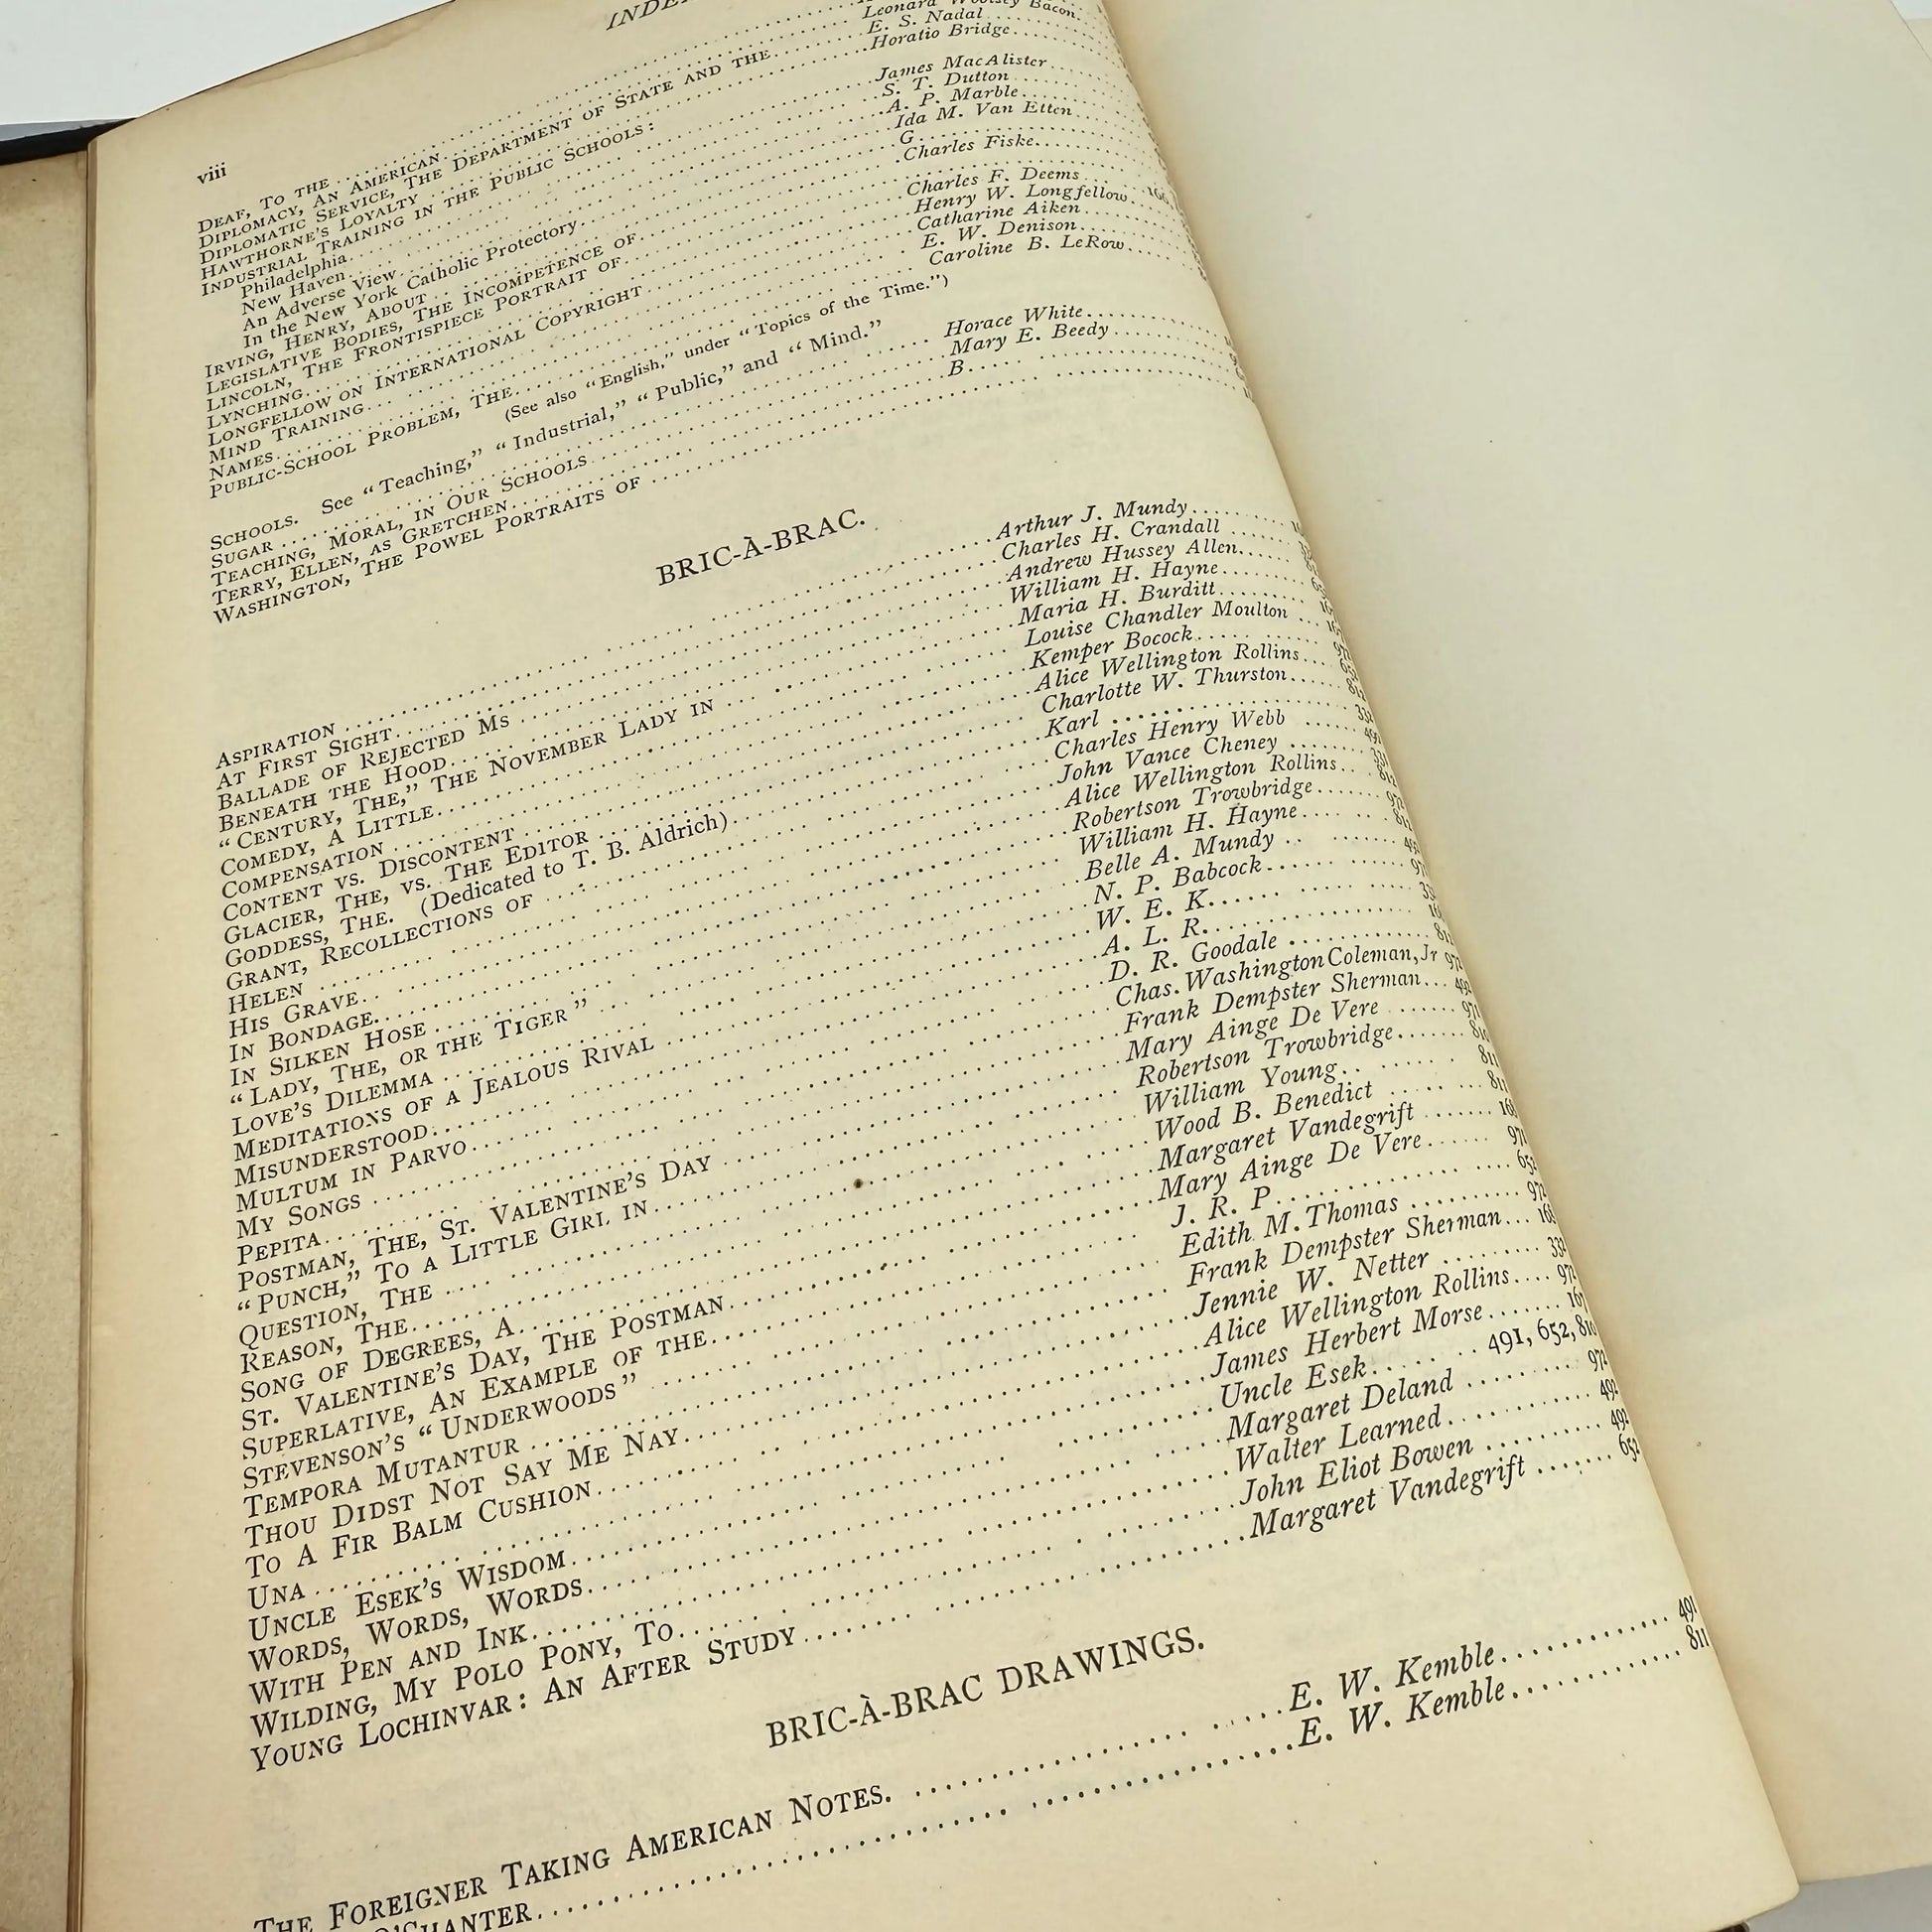 viii
DEAF, TO THE
DIPLOMACY, AN AMERICAN Leonard Woolsey Bacon
DIPLOMATIC SERVICE, THE DEPARTMENT OF STATE AND THE E. S. Nadal
HAWTHORNE'S LOYALTY Horatio Bridge
INDUSTRIAL TRAINING IN THE PUBLIC SCHOOLS:
Philadelphia James MacAlister
New Haven S. T. Dutton
An Adverse View A. P. Marble
In the New York Catholic Protectory Ida M. Van Etten
IRVING, HENRY, ABOUT G.
LEGISLATIVE BODIES, THE INCOMPETENCE OF Charles Fiske
LINCOLN, THE FRONTISPIECE PORTRAIT OF
LYNCHING Charles F. Deems
LONGFELLOW ON INTERNATIONAL COPYRIGHT Henry W. Longfellow
MIND TRAINING Catharine Aiken
NAMES E. W. Denison
PUBLIC-SCHOOL PROBLEM, THE Caroline B. LeRow
(See also "English," under "Topics of the Time.")
SCHOOLS. See "Teaching," "Industrial," "Public," and "Mind."
SUGAR Horace White
TEACHING, MORAL, IN OUR SCHOOLS Mary E. Beedy
TERRY, ELLEN, AS GRETCHEN B.
WASHINGTON, THE POWEL PORTRAITS OF
BRIC-À-BRAC.
ASPIRATION Arthur J. Mundy
AT FIRST SIGHT Charles H. Crandall
BALLADE OF REJECTED MS Andrew Hussey Allen
BENEATH THE HOOD William H. Hayne
"CENTURY, THE," THE NOVEMBER LADY IN Maria H. Burditt
COMEDY, A LITTLE Louise Chandler Moulton
COMPENSATION Kemper Bocock
CONTENT VS. DISCONTENT Alice Wellington Rollins
GLACIER, THE, VS. THE EDITOR Charlotte W. Thurston
GODDESS, THE. (Dedicated to T. B. Aldrich) Karl
GRANT, RECOLLECTIONS OF Charles Henry Webb
HELEN John Vance Cheney
HIS GRAVE Alice Wellington Rollins
IN BONDAGE Robertson Trowbridge
IN SILKEN HOSE William H. Hayne
"LADY, THE, OR THE TIGER" Belle A. Mundy
LOVE'S DILEMMA N. P. Babcock
MEDITATIONS OF A JEALOUS RIVAL W. E. K.
MISUNDERSTOOD A. L. R.
MULTUM IN PARVO D. R. Goodale
MY SONGS Chas. Washington Coleman, Jr
PEPITA Frank Dempster Sherman
POSTMAN, THE, ST. VALENTINE'S DAY Mary Ainge De Vere
"PUNCH," TO A LITTLE GIRL IN Robertson Trowbridge
QUESTION, THE William Young
REASON, THE Wood B. Benedict
SONG OF DEGREES, A Margaret Vandegrift
ST. VALENTINE'S DAY, THE POSTMAN Mary Ainge De Vere
SUPERLATIVE, AN EXAMPLE OF THE J. R. P.
STEVENSON'S "UNDERWOODS" Edith M. Thomas
TEMPORA MUTANTUR Frank Dempster Sherman
THOU DIDST NOT SAY ME NAY Jennie W. Netter
TO A FIR BALM CUSHION Alice Wellington Rollins
UNA James Herbert Morse
UNCLE ESEK'S WISDOM Uncle Esek 491, 652, 810
WORDS, WORDS, WORDS Margaret Deland
WITH PEN AND INK Walter Learned
WILDING, MY POLO PONY, TO John Eliot Bowen
YOUNG LOCHINVAR: AN AFTER STUDY Margaret Vandegrift
BRIC-À-BRAC DRAWINGS.
THE FOREIGNER TAKING AMERICAN NOTES. E. W. Kemble 491
O'SHANTER E. W. Kemble 811